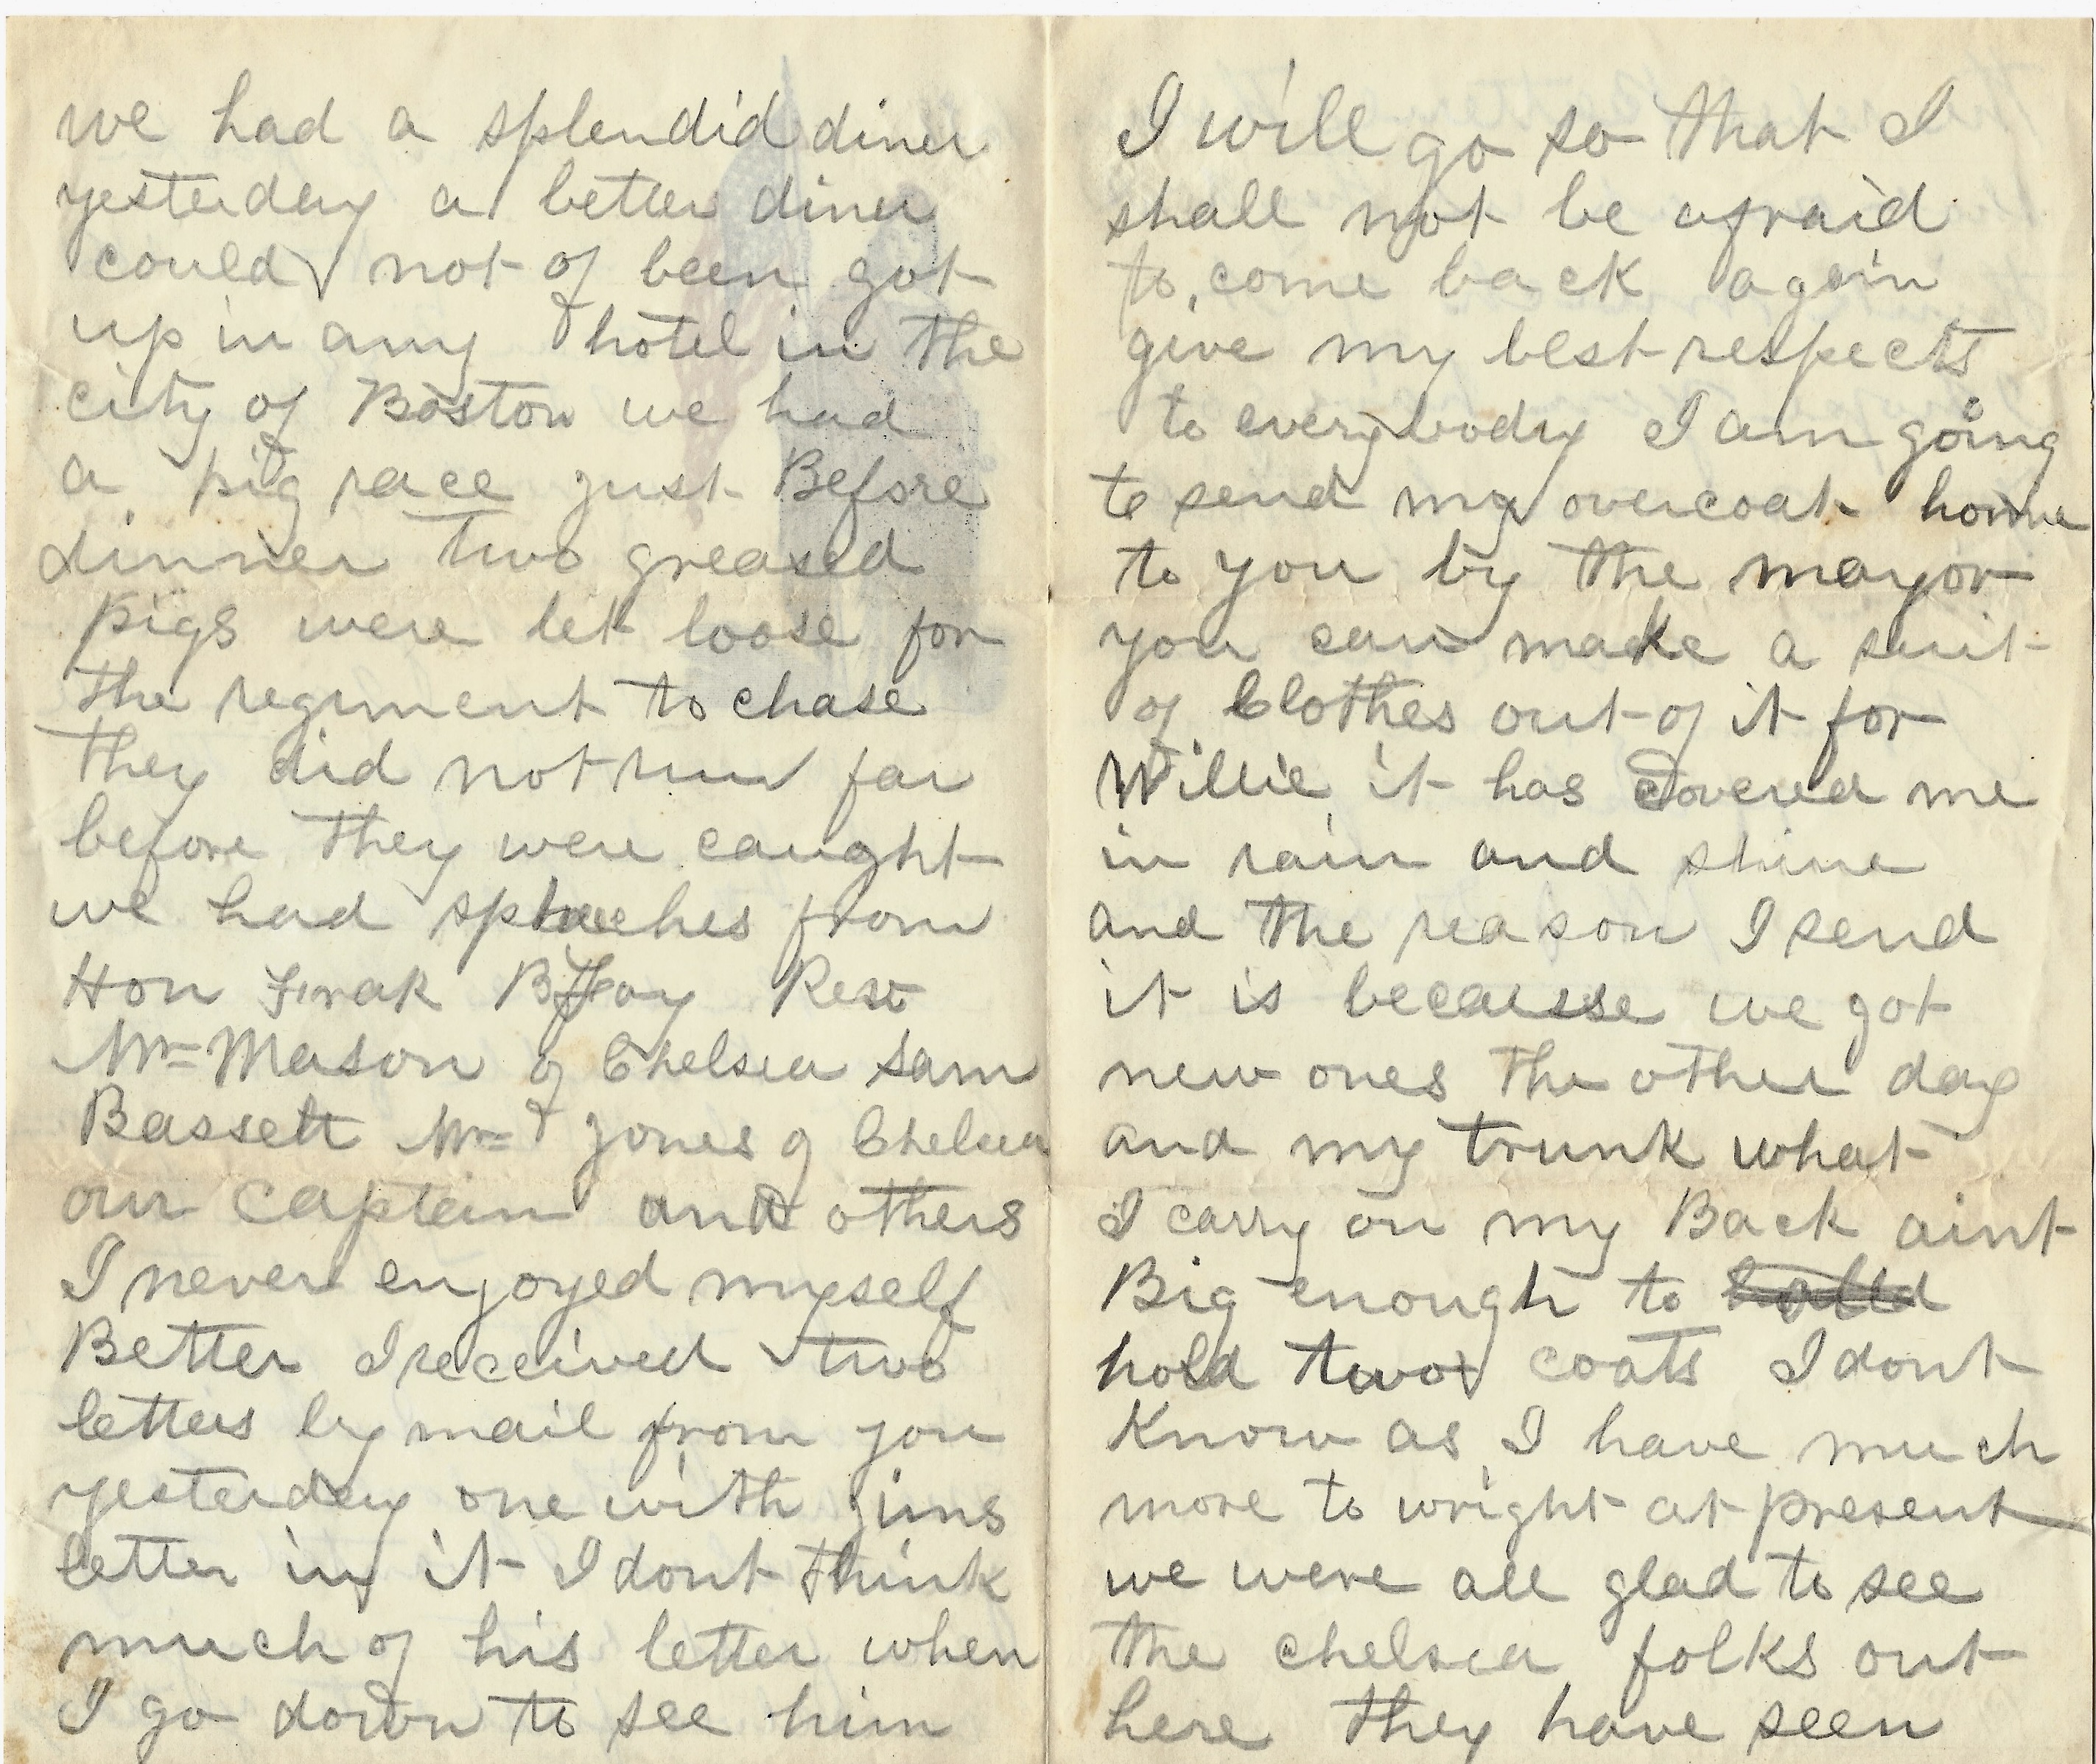 we had a splendid diner
yesterday a better diner
could not of been got
up in any hotel in the
city of Boston we had
a pig race just Before
dinner two greased
pigs were let loose for
the regiment to chase
they did not run far
before they were caught
we had speaches from
Hon Frak B Fay Rev
Mr Mason of Chelsea Sam
Bassett Mr Jones of Chelsea
our captain and others
I never enjoyed myself
Better I received two
letters by mail from you
yesterday one with jims
letter in it I dont think
much of his letter when
I go down to see him
I will go so that I
shall not be afraid
to come back again
give my best respects
to everybody I am going
to send my overcoat home
to you by the mayor
you can make a suit
of Clothes out of it for
Willie it has covered me
in rain and shine
and the reason I send
it is because we got
new ones the other day
and my trunk what
I carry on my Back aint
Big enough to
hold two coats I dont
Know as I have much
more to wright at present
we were all glad to see
the chelsea folks out
here they have seen